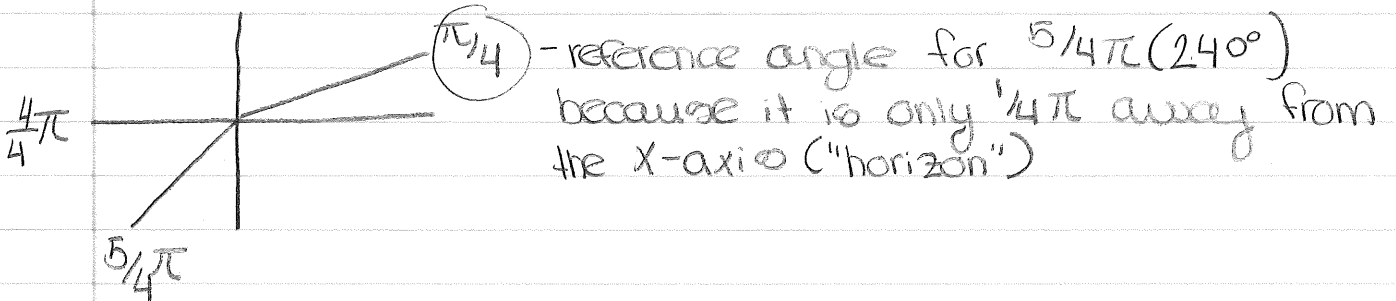 π/4 - reference angle for 5/4π (240°)
because it is only 1/4π away from
4/4 π
the x-axis ("horizon")
5/4π